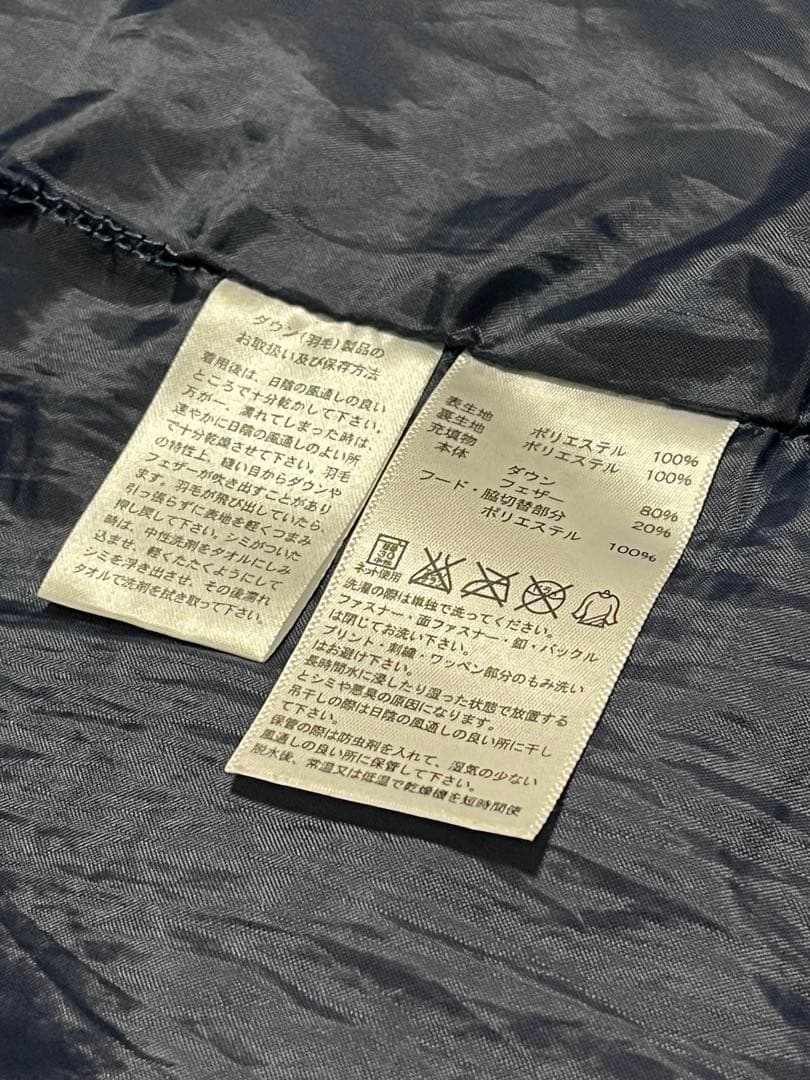 ダウン(羽毛)製品の
お取扱い及び保存方法
着用後は、日陰の風通しの良い
ところで十分乾かして下さい。
万が一、濡れてしまった時は、
速やかに日陰の風通しのよい所
で十分乾燥させて下さい。羽毛
の特性上、縫い目からダウンや
フェザーが吹き出すことがあり
ます。羽毛が飛び出していたら、
引っ張らずに表地を軽くつまみ
押し戻して下さい。シミがついた
時は、中性洗剤をタオルにしみ
込ませ、軽くたたくようにして
シミを浮き出させ、その後濡れ
タオルで洗剤を拭き取って下さい。
表生地 ポリエステル 100%
裏生地 ポリエステル 100%
充填物
本体 ダウン 80%
フェザー 20%
フード・脇切替部分
ポリエステル 100%
ネット使用
洗濯の際は単独で洗ってください。
ファスナー・面ファスナー・釦・バックル
は閉じてお洗い下さい。
プリント・刺繍・ワッペン部分のもみ洗い
はお避け下さい。
長時間水に浸したり湿った状態で放置する
とシミや悪臭の原因になります。
吊干しの際は日陰の風通しの良い所に干し
て下さい。
保管の際は防虫剤を入れて、湿気の少ない
風通しの良い所に保管して下さい。
脱水後、常温又は低温で乾燥機を短時間使